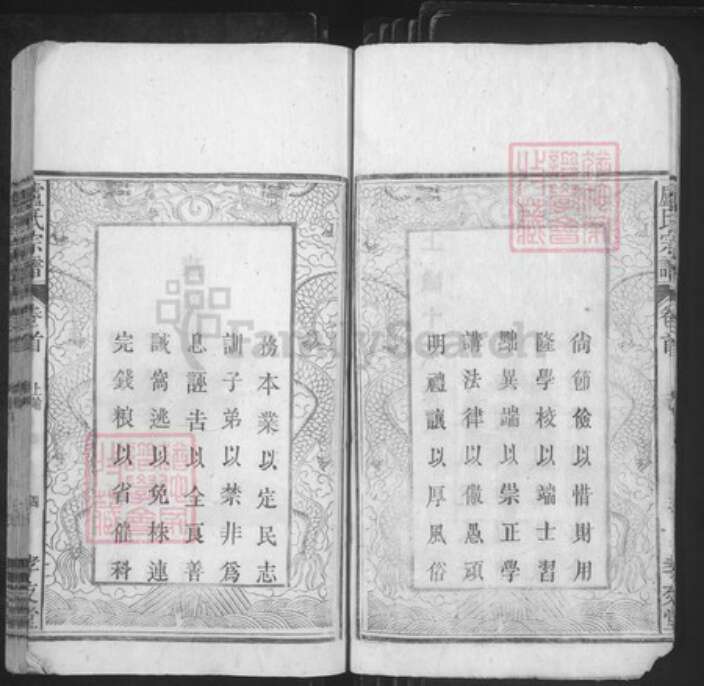 尙節儉以惜財用
隆學校以端士習
黜異端以崇正學
講法律以儆愚頑
明禮讓以厚風俗
務本業以定民志
訓子弟以禁非爲
息誣告以全良善
誡窩逃以免株連
完錢粮以省催科
盧氏宗譜
卷首
盧氏宗譜
卷之首
上諭
四
孝友堂
FamilySearch